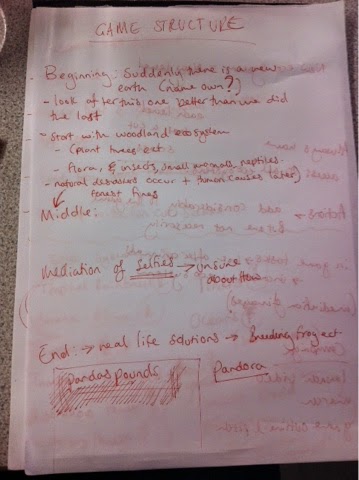 GAME STRUCTURE
Beginning: Suddenly there is a new
earth (name own?)
- look after this one better than we did
the last
- Start with woodland ecosystem
- (plant trees ect
- flora, & insects, small mammals, reptiles.
- natural desasters occur + (human causes later)
forest fires
Middle:
mediation of selfies → unsure
about how
End: → real life solutions → Breeding Project
Pandas pounds
Pandora